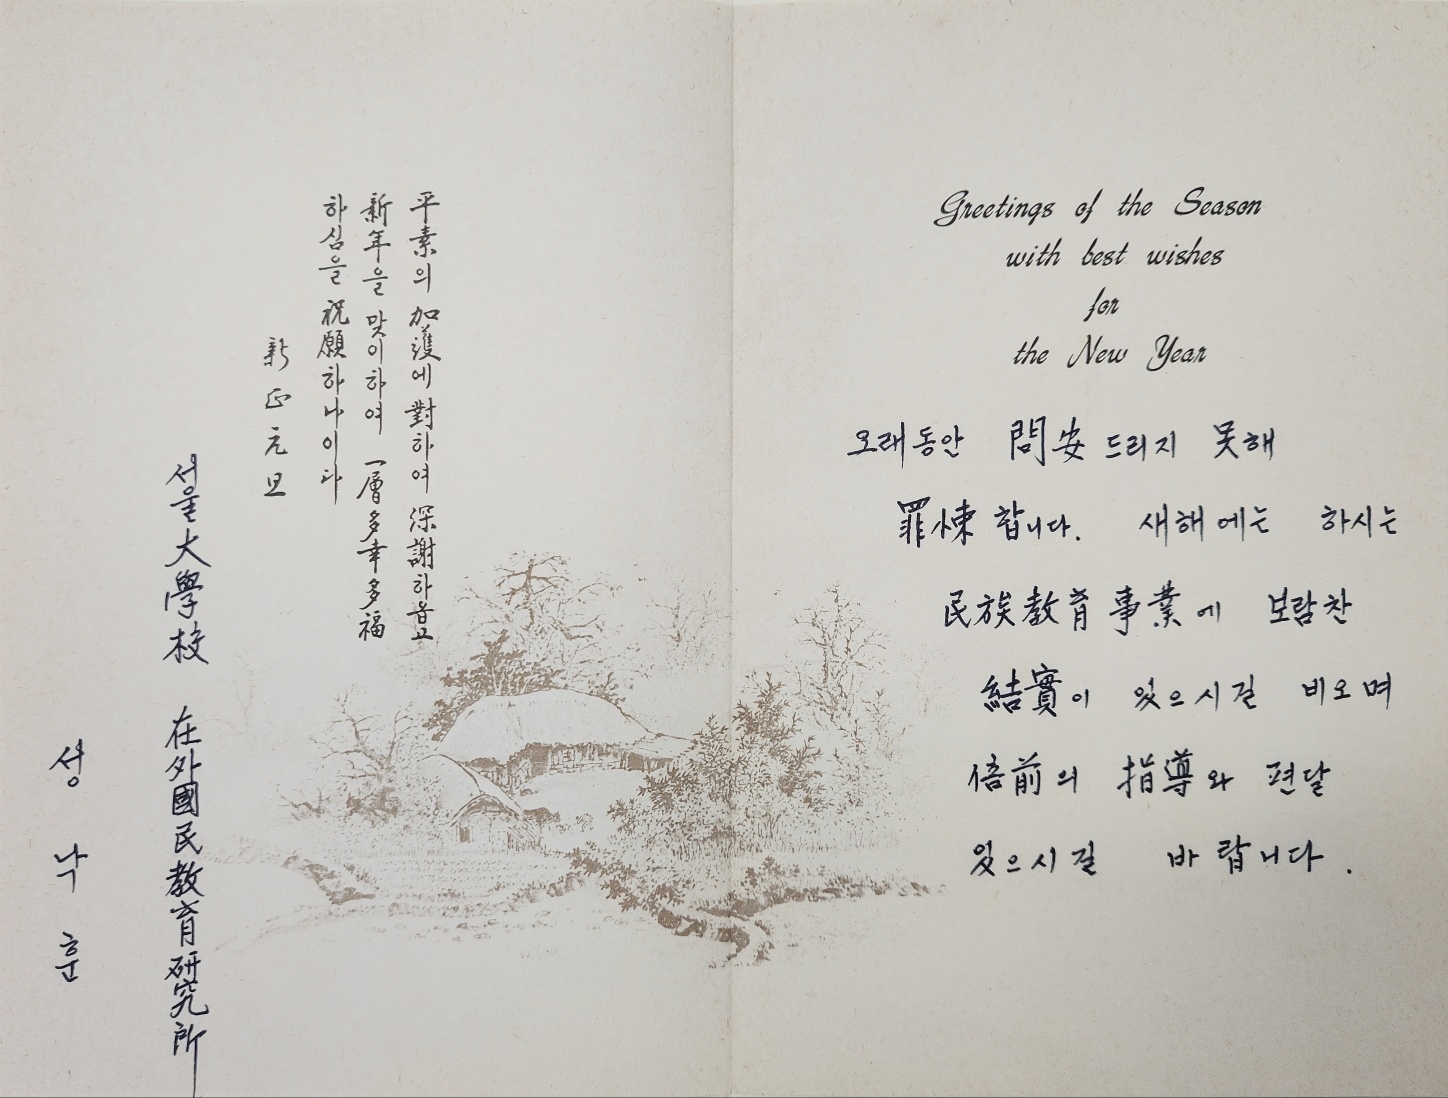 平素의 加護에 對하여 深謝하옵고
新年을 맞이하여 一層 多幸多福
하심을 祝願하나이다
新正元旦
서울大學校 在外國民教育研究所
성낙훈
Greetings of the Season
with best wishes
for
the New Year
오래동안 問安드리지 못해
罪悚합니다. 새해에는 하시는
民族教育事業에 보람찬
結實이 있으시길 비오며
倍前의 指導와 편달
있으시길 바랍니다.